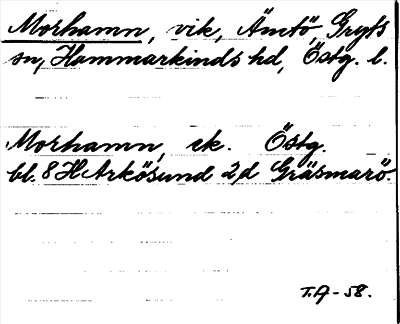 Morhamn, vik, Ämtö, Gryts
sn, Hammarkinds hd, Östg. l.
Morhamn, ek. Östg.
bl. 8 H Arkösund 2d Gräsmarö
T.A - 58.